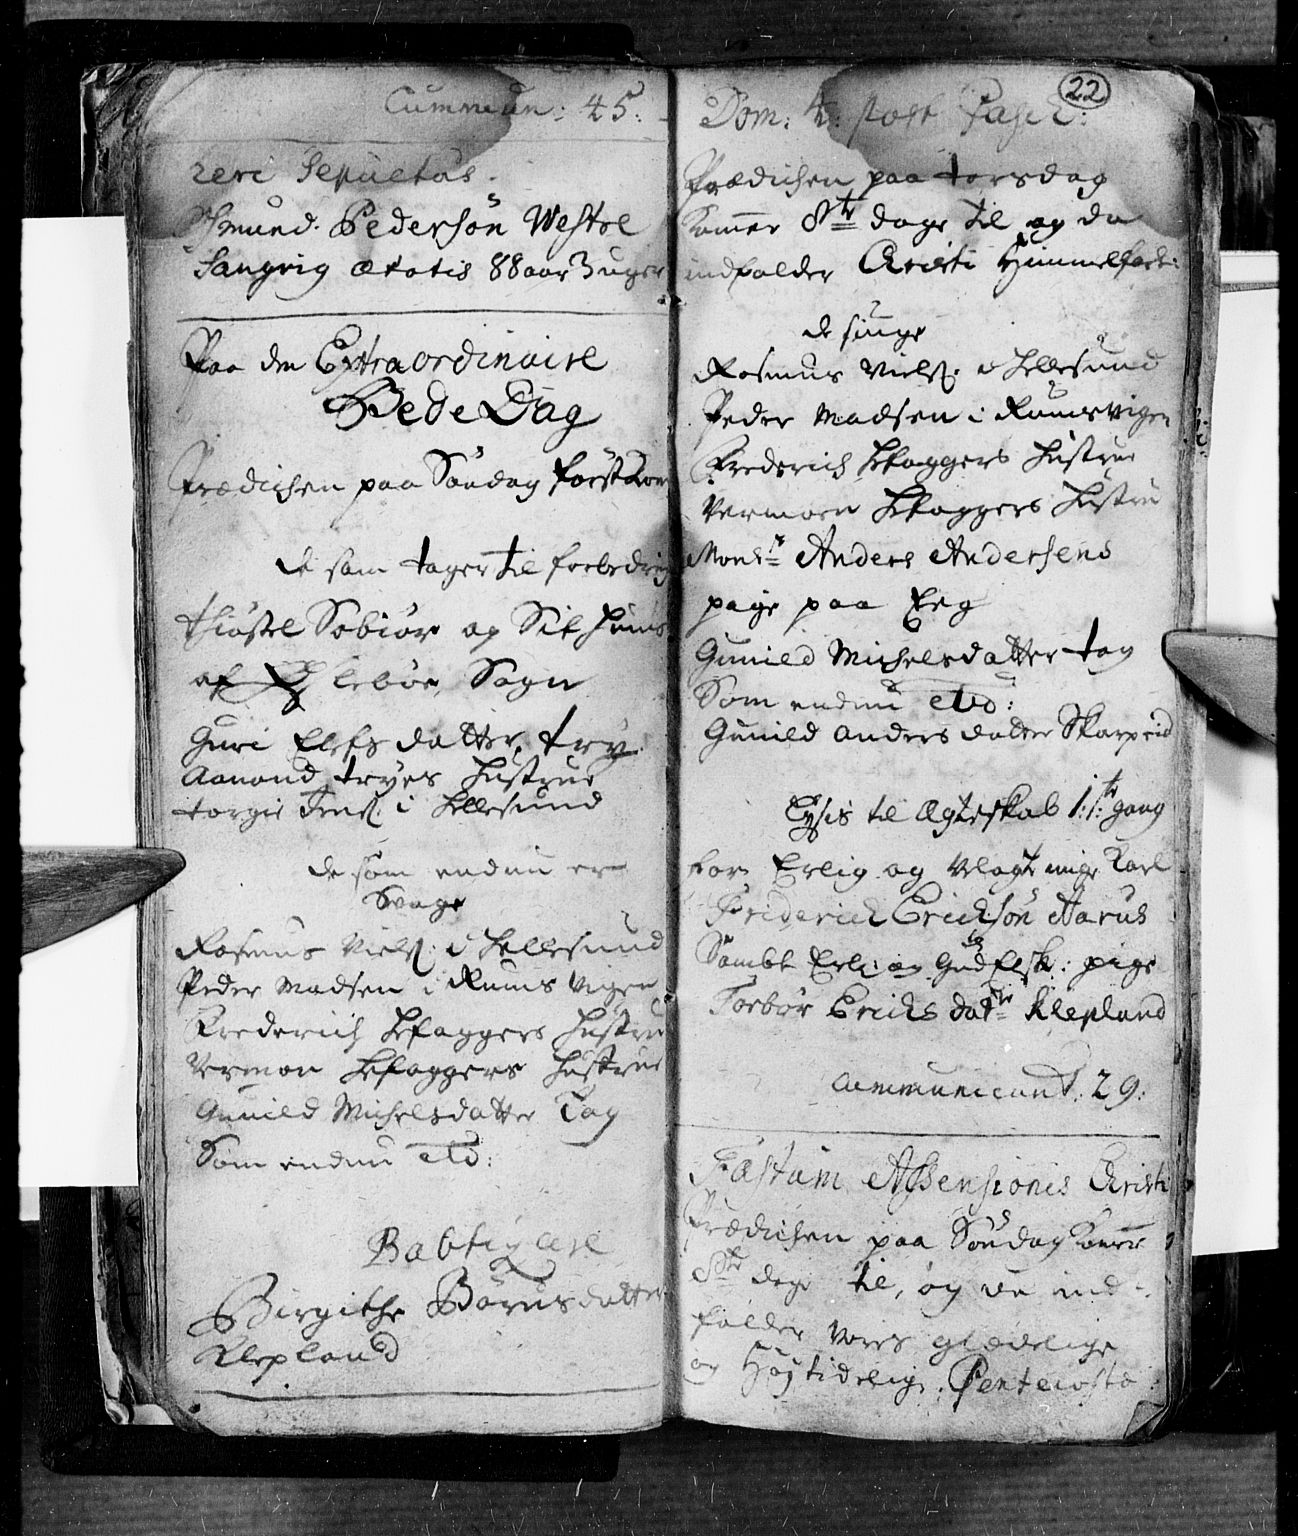 Cummun: 45:
reri Sepultus.
Asmund Pederson Westre
Sangvig ætatis 88 aar 3 uger
Paa den Extraordinaire
Bede Dag
Prædichen paa Søndag først kom
de som tager til forbedring
Thiøstel Sobiør og Sit huus
af lebøe Sogn
Guri Elefs datter, try.
Aanond tryes hustrue
torgie Jens: i hellesund
de som endnu er
Svage
Rasmus Niels: i hellesund
Peder Madsen i Rums Vigen
Frederich hustrue
Vermon hustrue
Gunild Michelsdatter Tag
Som endnu etc:
Babtizere
Birgithe Børusdatter
Klepland
22
Dom: 4: post Pasch:
Prædichen paa torsdag
kommer 8te dage til og da
indfalder Christi Himmelfart:
de siuge
Rasmus Niels: i hellesund
Peder Madsen i Rumsvigen
Frederich hustrue
Vermoen hustru
Monsr Anders Andersens
pige paa Eeg
Gunild Michelsdatter tag
Som endnu etc:
Gunild Anders datter Skarpeid
Lyses til Ægteskab 1:ste gang
for Erlig og Velagt unge Karl
Friderich Erichsøn Aarus
Sambt Erl: og Gudelsk: pige
Torbør Erichs datr Klepland
Communicant: 29:
Fæstum Assensionis Christi
Prædichen paa Søndag kommer
8te dage til, og da ind-
falder vores glædelige
og Høytidelig: Pentecoste